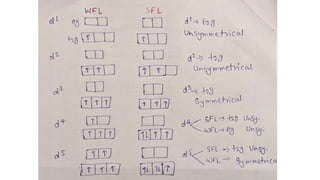 WFL SFL
d1 eg d1 → t2g
t2g ↑ ↑ Unsymmetrical
d2 d2 → t2g
↑ ↑ ↑ ↑ Unsymmetrical
d3 d3 → t2g
↑ ↑ ↑ ↑ ↑ ↑ Symmetrical
d4 ↑ d4 SFL → t2g Unsy.
↑ ↑ ↑ ↑↓ ↑ ↑ WFL → eg Unsy.
d5 ↑ ↑ d5 SFL → t2g Unsy.
↑ ↑ ↑ ↑↓ ↑↓ ↑ WFL → Symmetrical